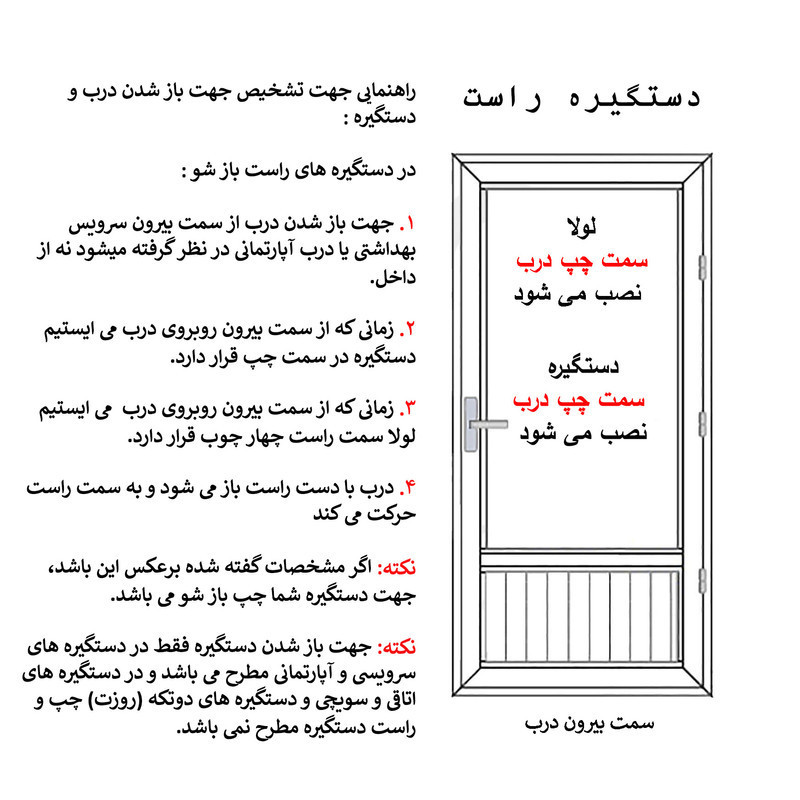 دستگیره راست
راهنمایی جهت تشخیص جهت باز شدن درب و
دستگیره :
در دستگیره های راست باز شو :
۱. جهت باز شدن درب از سمت بیرون سرویس
بهداشتی یا درب آپارتمانی در نظر گرفته میشود نه از
داخل.
۲. زمانی که از سمت بیرون روبروی درب می ایستیم
دستگیره در سمت چپ قرار دارد.
۳. زمانی که از سمت بیرون روبروی درب می ایستیم
لولا سمت راست چهار چوب قرار دارد.
۴. درب با دست راست باز می شود و به سمت راست
حرکت می کند
نکته: اگر مشخصات گفته شده برعکس این باشد،
جهت دستگیره شما چپ باز شو می باشد.
نکته: جهت باز شدن دستگیره فقط در دستگیره های
سرویسی و آپارتمانی مطرح می باشد و در دستگیره های
اتاقی و سویچی و دستگیره های دوتکه (روزت) چپ و
راست دستگیره مطرح نمی باشد.
لولا
سمت چپ درب
نصب می شود
دستگیره
سمت چپ درب
نصب می شود
سمت بیرون درب